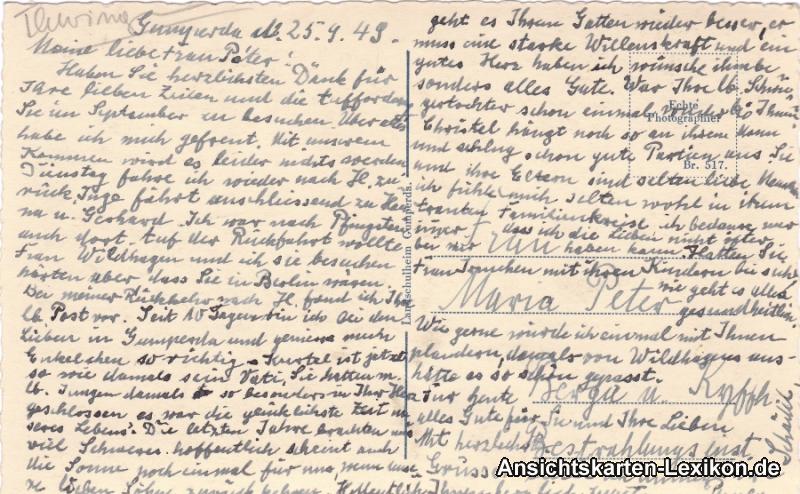 Thüringen
Gumperda d. 25.9.49.
Meine liebe Frau Peter!
Haben Sie herzlichsten Dank für
Ihre lieben Zeilen und die Aufforderung
Sie im September zu besuchen. Über alles
habe ich mich gefreut. Mit unserem
Kommen wird es leider nichts werden
Dienstag fahre ich wieder nach H. zu-
rück. Inge fährt anschliessend zu
u. Gerhard. Ich war nach Pfingsten
auch dort. Auf der Rückfahrt wollte
Frau Wildhagen und ich Sie besuchen
hörten aber dass Sie in Berlin wären.
Bei meiner Rückkehr nach H. fand ich Ihre
lb. Post vor. Seit 10 Tagen bin ich bei den
Lieben in Gumperda und geniesse mein
Enkelchen so richtig. ist jetzt
so wie damals sein Vati, Sie hatten m.
lb. Jungen damals so besonders in Ihr Herz
geschlossen es war die glücklichste Zeit un-
seres Lebens. Die letzten Jahre brachten uns
viel Schweres. hoffentlich scheint auch
die Sonne noch einmal für uns, wenn unse-
re lieben Söhne zurück kehren. Hoffentlich
geht es Ihrem Gatten wieder besser, er
muss eine starke Willenskraft und ein
gutes Herz haben ich wünsche ihm be-
sonders alles Gute. War Ihre lb. Schwie-
gertochter schon einmal wieder bei Ihnen
Christel hängt noch so an ihrem Mann
und schlug schon gute Partien aus. Sie
und ihre Eltern sind selten liebe Menschen
ich fühle mich selten wohl in ihrem
trauten Familienkreise, ich bedaure nur
immer, dass ich die Lieben nicht öfter
bei mir haben kann. Hatten Sie
Frau mit ihren Kindern bei sich
wie geht es alles
gesundheitlich
Wie gerne würde ich einmal mit Ihnen
plaudern, damals von Wildhagens aus
hätte es so schön gepasst.
Für heute
alles Gute für Sie und Ihre Lieben
Mit herzlichen
Grüssen
Echte
Photographie
Nr. 517.
Landschulheim Gumperda.
Frau
Maria Peter
Berga u. Kyffh
Bestrahlungsinst.
Ansichtskarten-Lexikon.de